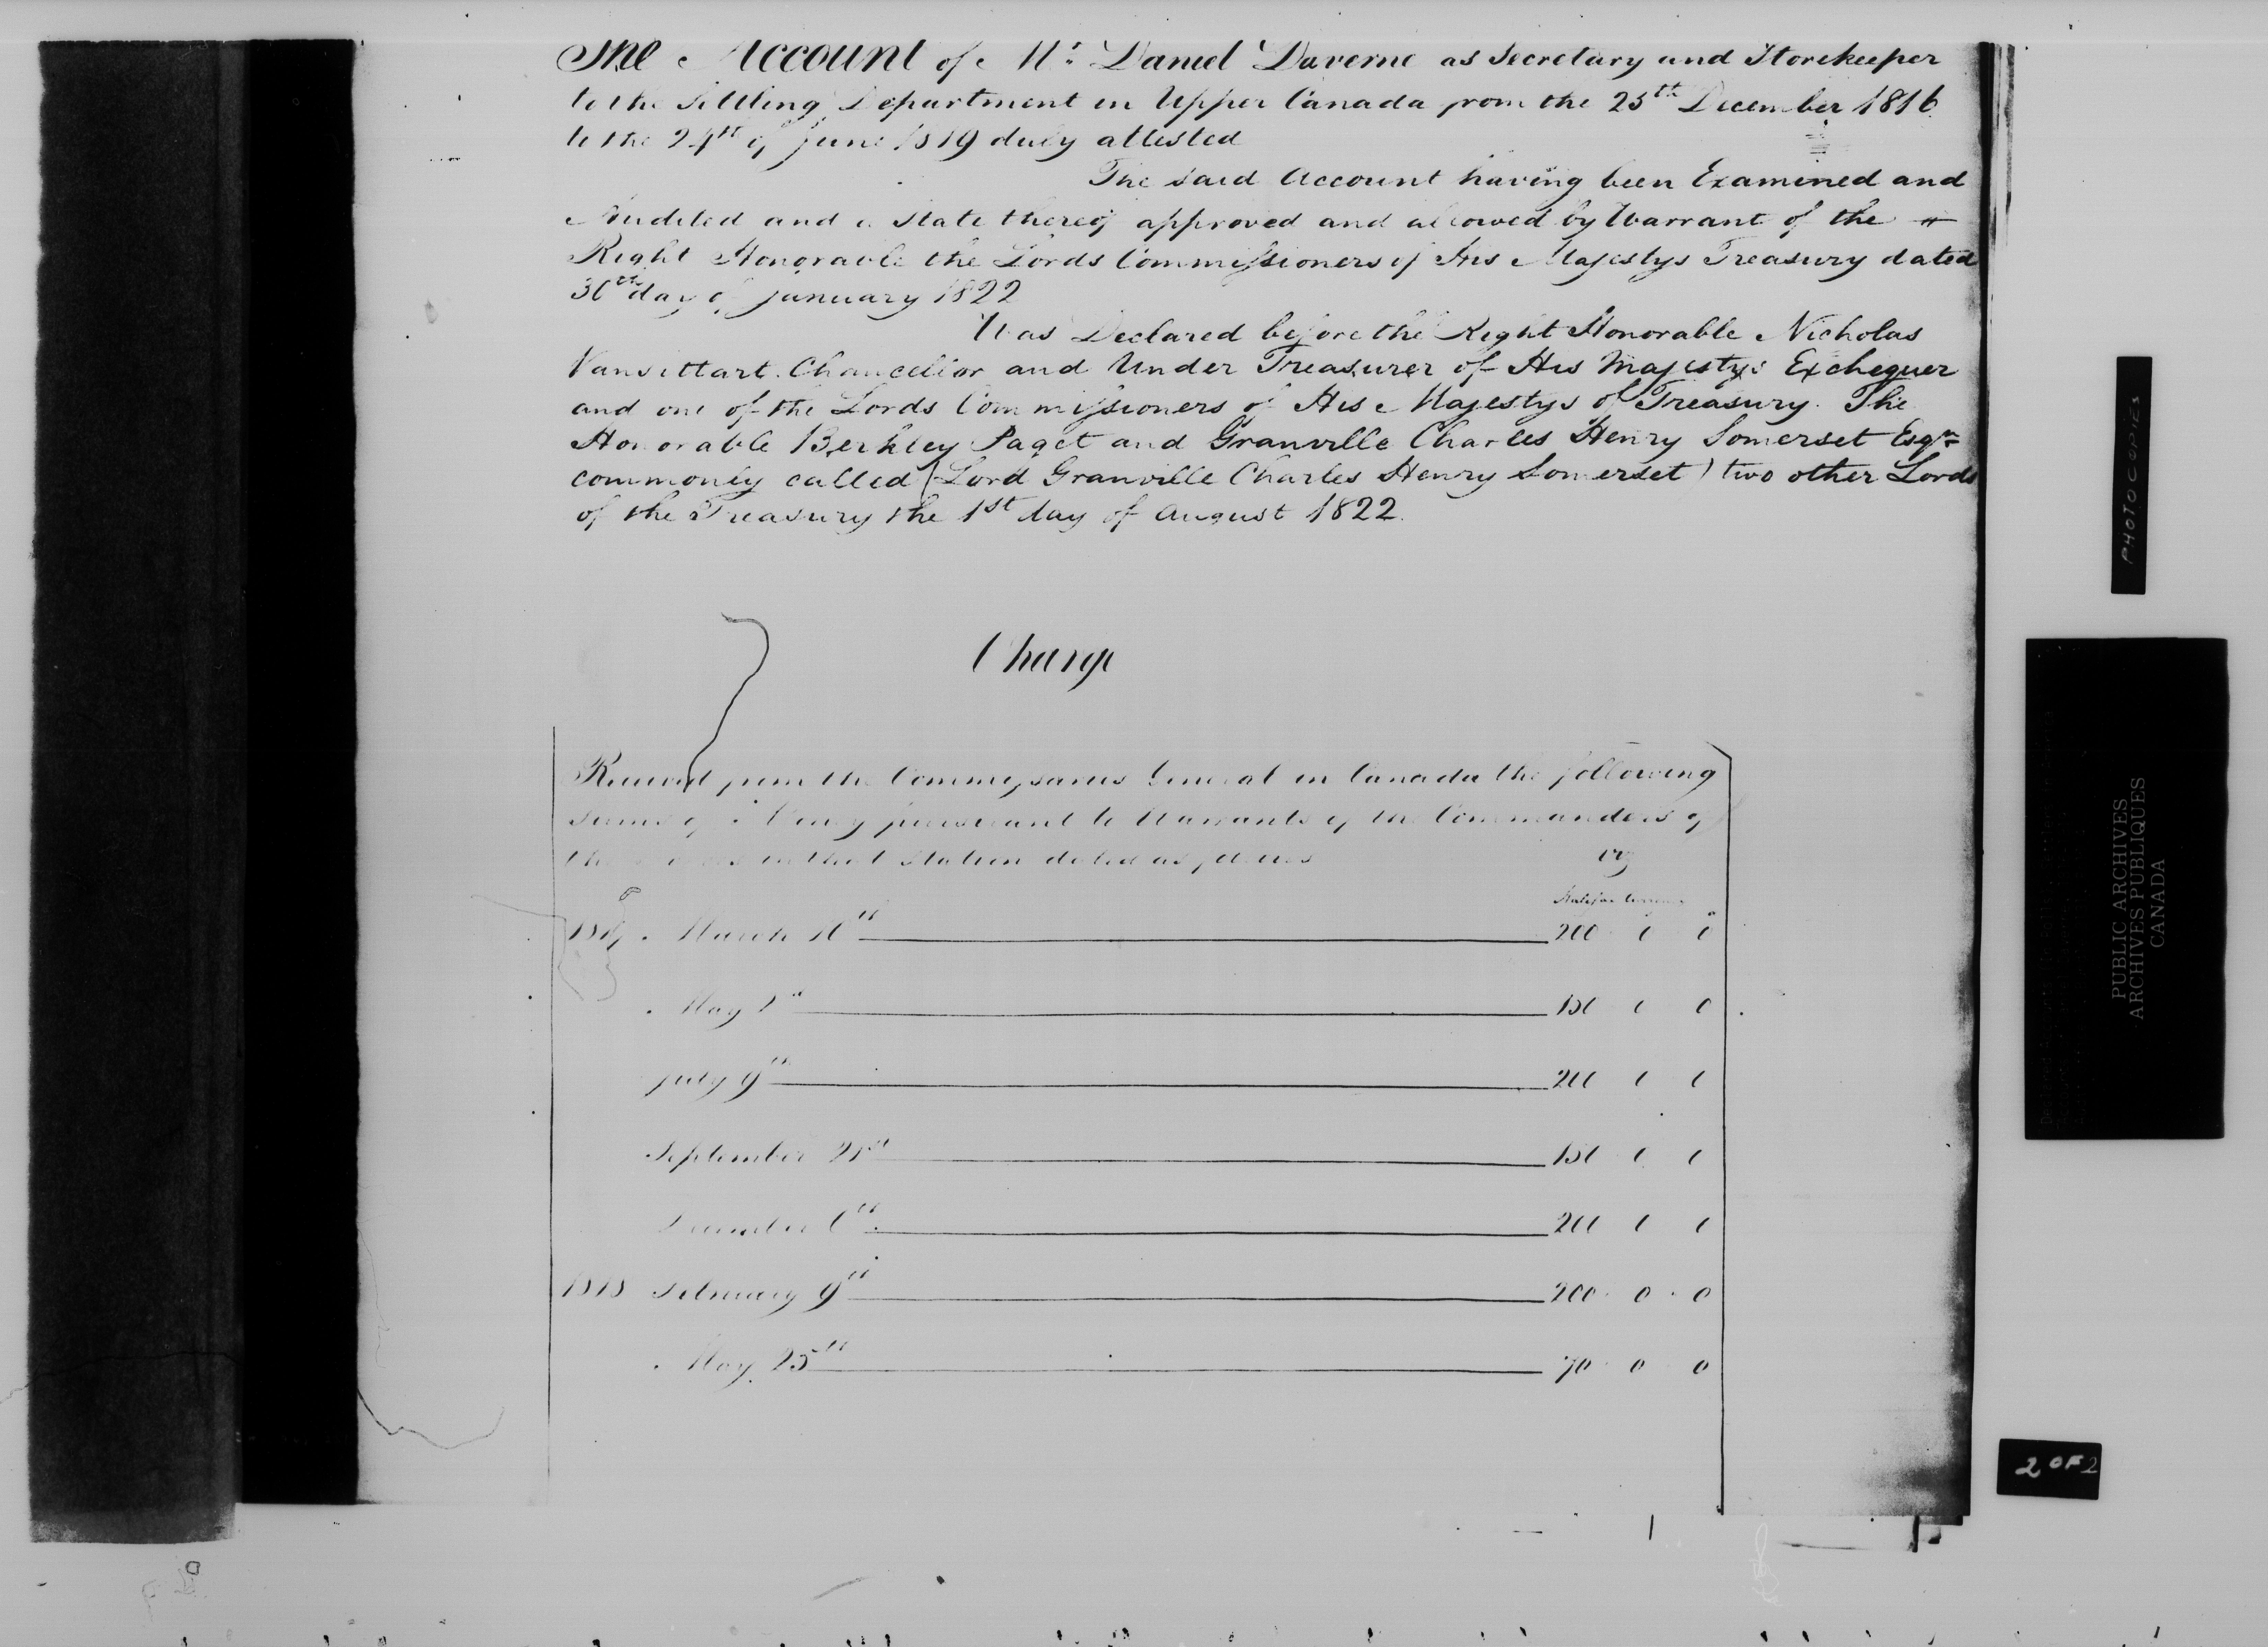 The Account of Mr Daniel Daverne as Secretary and Storekeeper
to the Settling Department in Upper Canada from the 25th December 1816
to the 24th of June 1819 duly attested
The said Account having been Examined and
Audited and a State thereof approved and allowed by Warrant of the
Right Honorable the Lords Commissioners of His Majestys Treasury dated
30th day of January 1822
Was Declared before the Right Honorable Nicholas
Vansittart Chancellor and Under Treasurer of His Majestys Exchequer
and one of the Lords Commissioners of His Majestys of Treasury. The
Honorable Berkley Paget and Granville Charles Henry Somerset Esqre
commonly called (Lord Granville Charles Henry Somerset) two other Lords
of the Treasury the 1st day of August 1822.
Charge
Received from the Commissaries General in Canada the following
Sums of Money pursuant to Warrants of the Commanders of
the Forces in that Station dated as follows
Viz
Halifax Currency
1817 March 10th 200 0 0
May 150 0 0
July 9th 200 0 0
September 150 0 0
December 6th 200 0 0
1818 February 9th 200 0 0
May 25th 70 0 0
PHOTOCOPIES
PUBLIC ARCHIVES
ARCHIVES PUBLIQUES
CANADA
2 OF 2